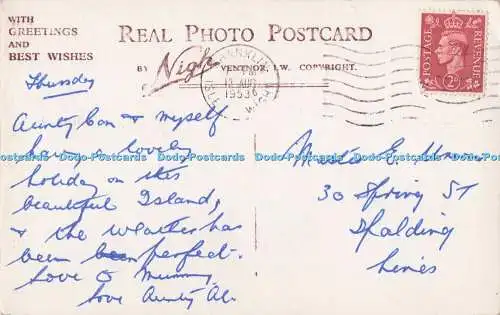 WITH
GREETINGS
AND
BEST WISHES
REAL PHOTO POSTCARD
BY Nigh VENTNOR, I.W. COPYRIGHT.
SHANKLIN
12 AUG
1953
ISLE WIGHT
POSTAGE REVENUE
2D
Thursday
Aunty Con & myself
having a lovely
holiday on this
beautiful Island,
& the weather has
been perfect.
Love & Mummy,
love Aunty Al.
Master E.
30 Spring St
Spalding
Lincs
Dodo-Postcards Dodo-Postcards Dodo-Postcards Dodo-Postcards Dodo-Postcards Dodo-Postcards